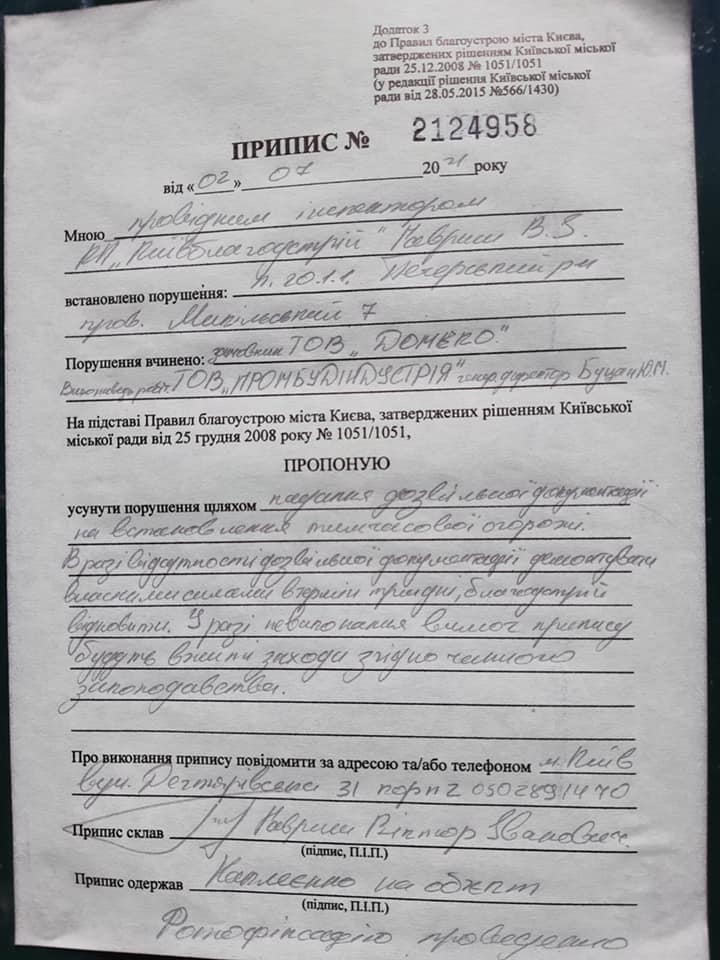 Додаток 3
до Правил благоустрою міста Києва,
затверджених рішенням Київської міської
ради 25.12.2008 № 1051/1051
(у редакції рішення Київської міської
ради від 28.05.2015 №566/1430)
ПРИПИС № 2124958
від «02» 07 2021 року
Мною провідним інспектором
КП „Київблагоустрій" Гавриш В.І.
встановлено порушення: п. 20.1.1. Печерський р-н
пров. Микільський 7
Порушення вчинено: замовник ТОВ „ДОМЕКО."
Виконавець робіт. ТОВ „ПРОМБУДІНДУСТРІЯ" генер. директор Буцан Ю.М.
На підставі Правил благоустрою міста Києва, затверджених рішенням Київської
міської ради від 25 грудня 2008 року № 1051/1051,
ПРОПОНУЮ
усунути порушення шляхом надання дозвільної документації
на встановлення тимчасової огорожі.
В разі відсутності дозвільної документації демонтувати
власними силами в термін три дні, благоустрій
відновити. У разі невиконання вимог припису
будуть вжиті заходи згідно чинного
законодавства.
Про виконання припису повідомити за адресою та/або телефоном м. Київ
вул. Дегтярівська 31 корп 2 0502891470
Припис склав Гавриш Віктор Іванович.
(підпис, П.І.П.)
Припис одержав Наклеєнно на обєкт
(підпис, П.І.П.)
Фотофіксацію проведенно